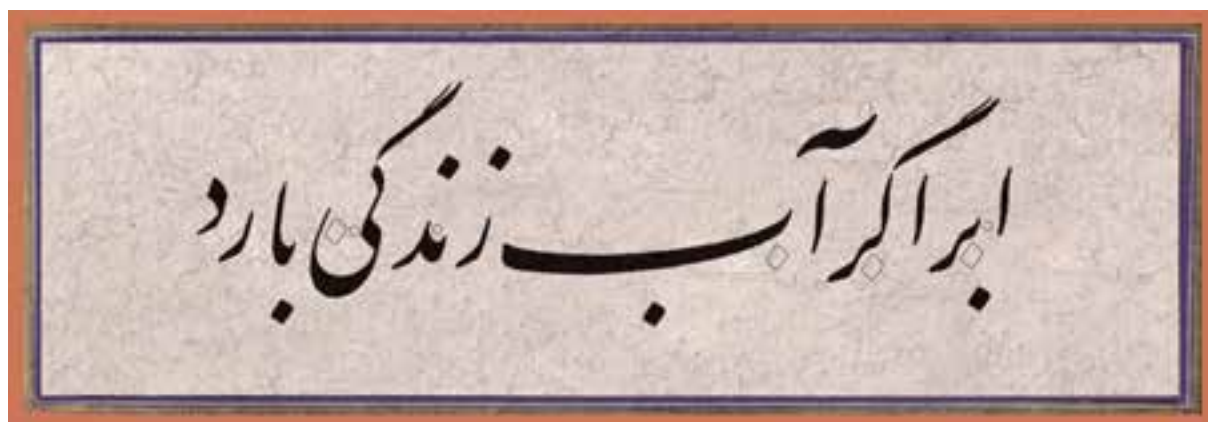 ابر اگر آب زندگی بارد